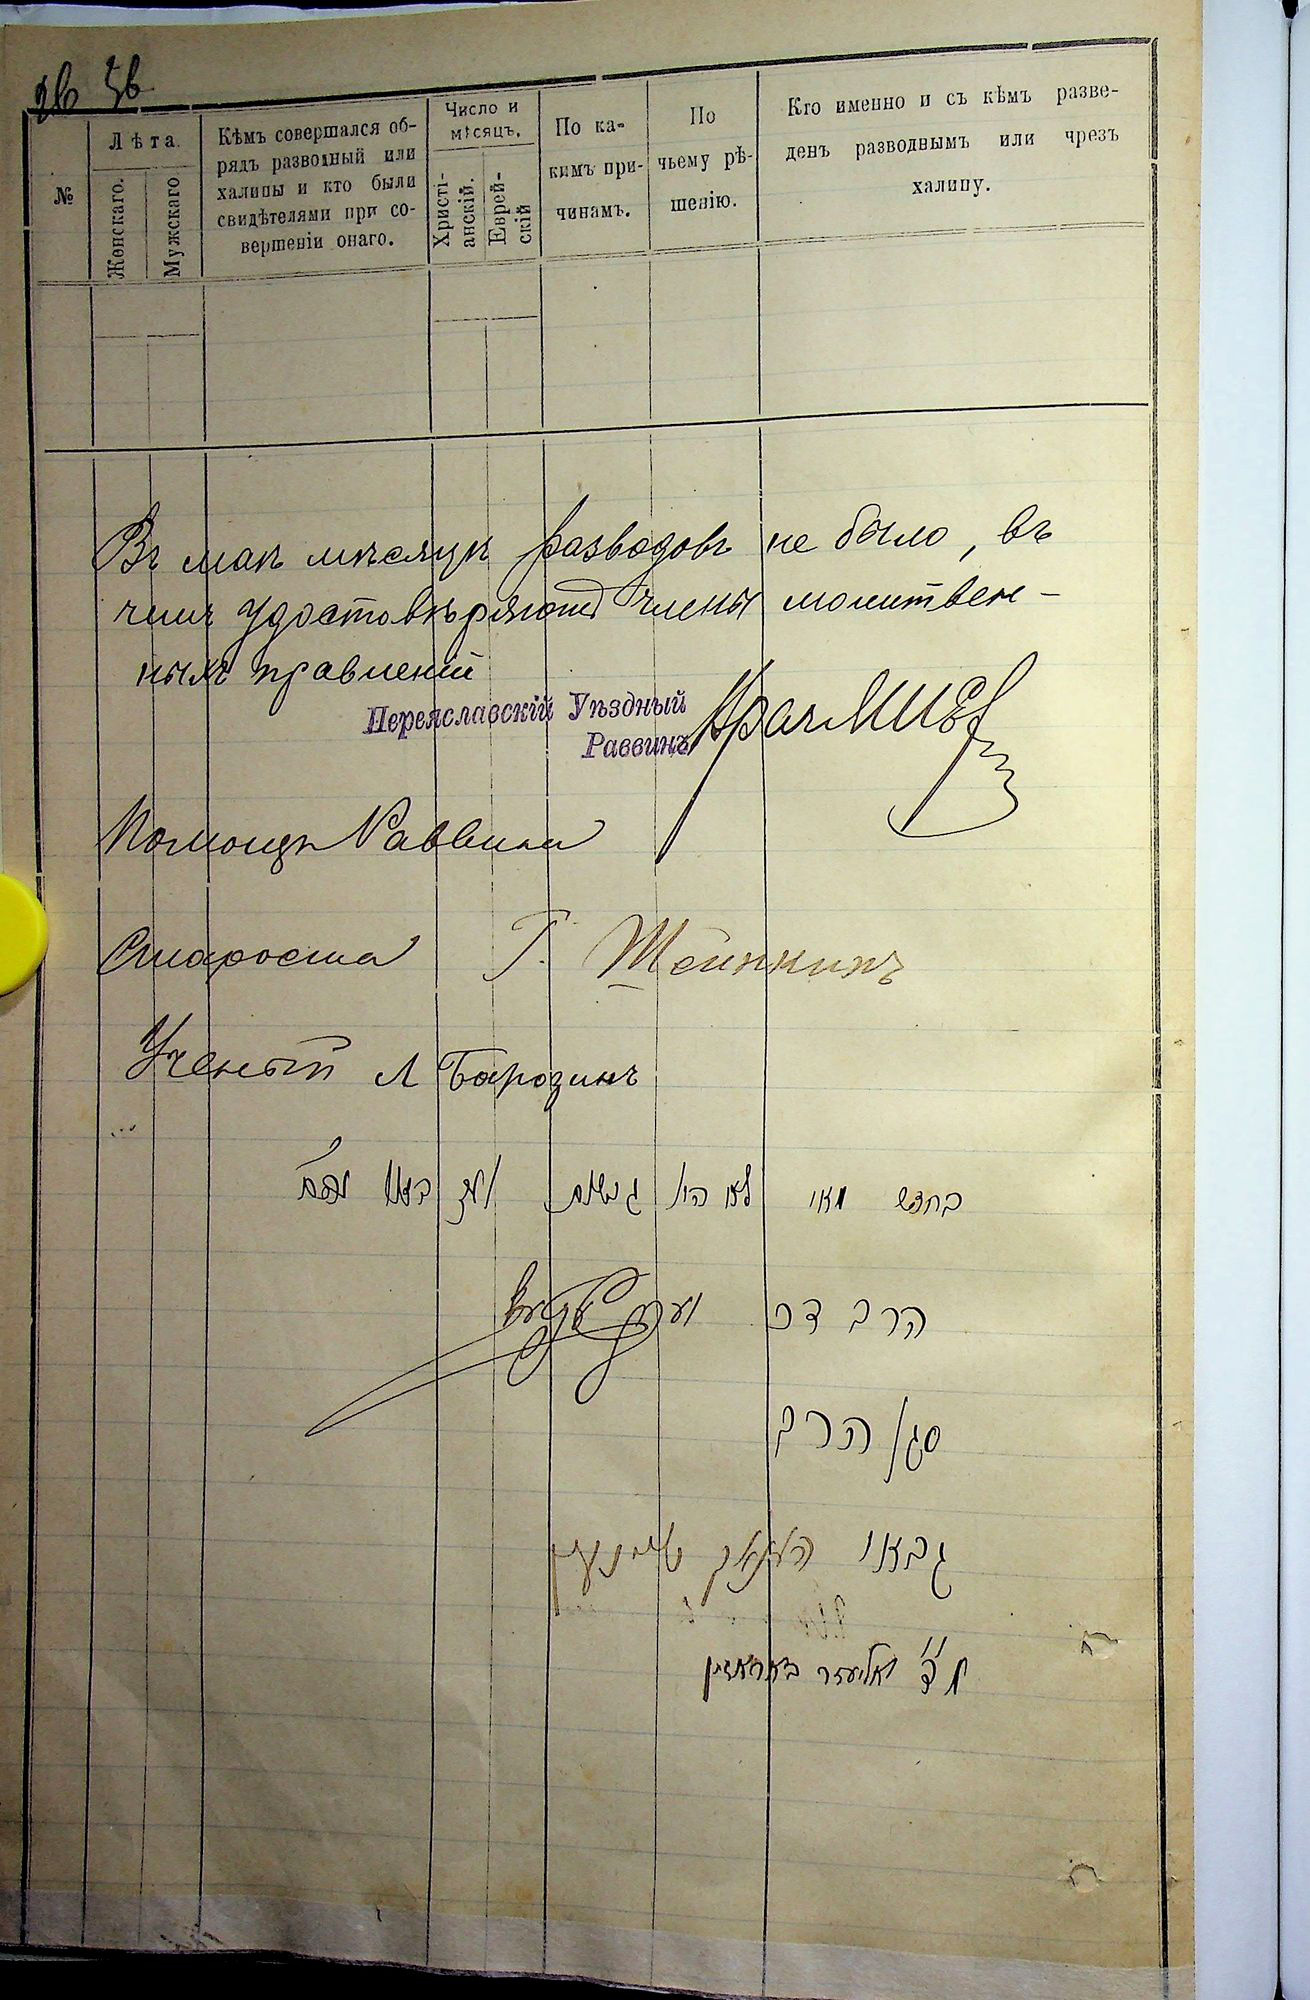 №
Лѣта.
Женскаго.
Мужскаго
Кѣмъ совершался об-
рядъ разводный или
халицы и кто были
свидѣтелями при со-
вершеніи онаго.
Число и
мѣсяцъ.
Христі-
анскій.
Еврей-
скій
По ка-
кимъ при-
чинамъ.
По
чьему рѣ-
шенію.
Кто именно и съ кѣмъ разве-
денъ разводнымъ или чрезъ
халицу.
Въ маѣ мѣсяцѣ разводовъ не было, въ
чемъ удостовѣряютъ члены молитвен-
ныхъ правленій
Переяславскій Уѣздный
Раввинъ
Помощн Раввина
Староста Г. Штейнкинъ
Ученый Л Барозинъ
בחדש מאי לא היו גטים
הרב דפ
סגן הרב
גבאי
אליעזר באראזין